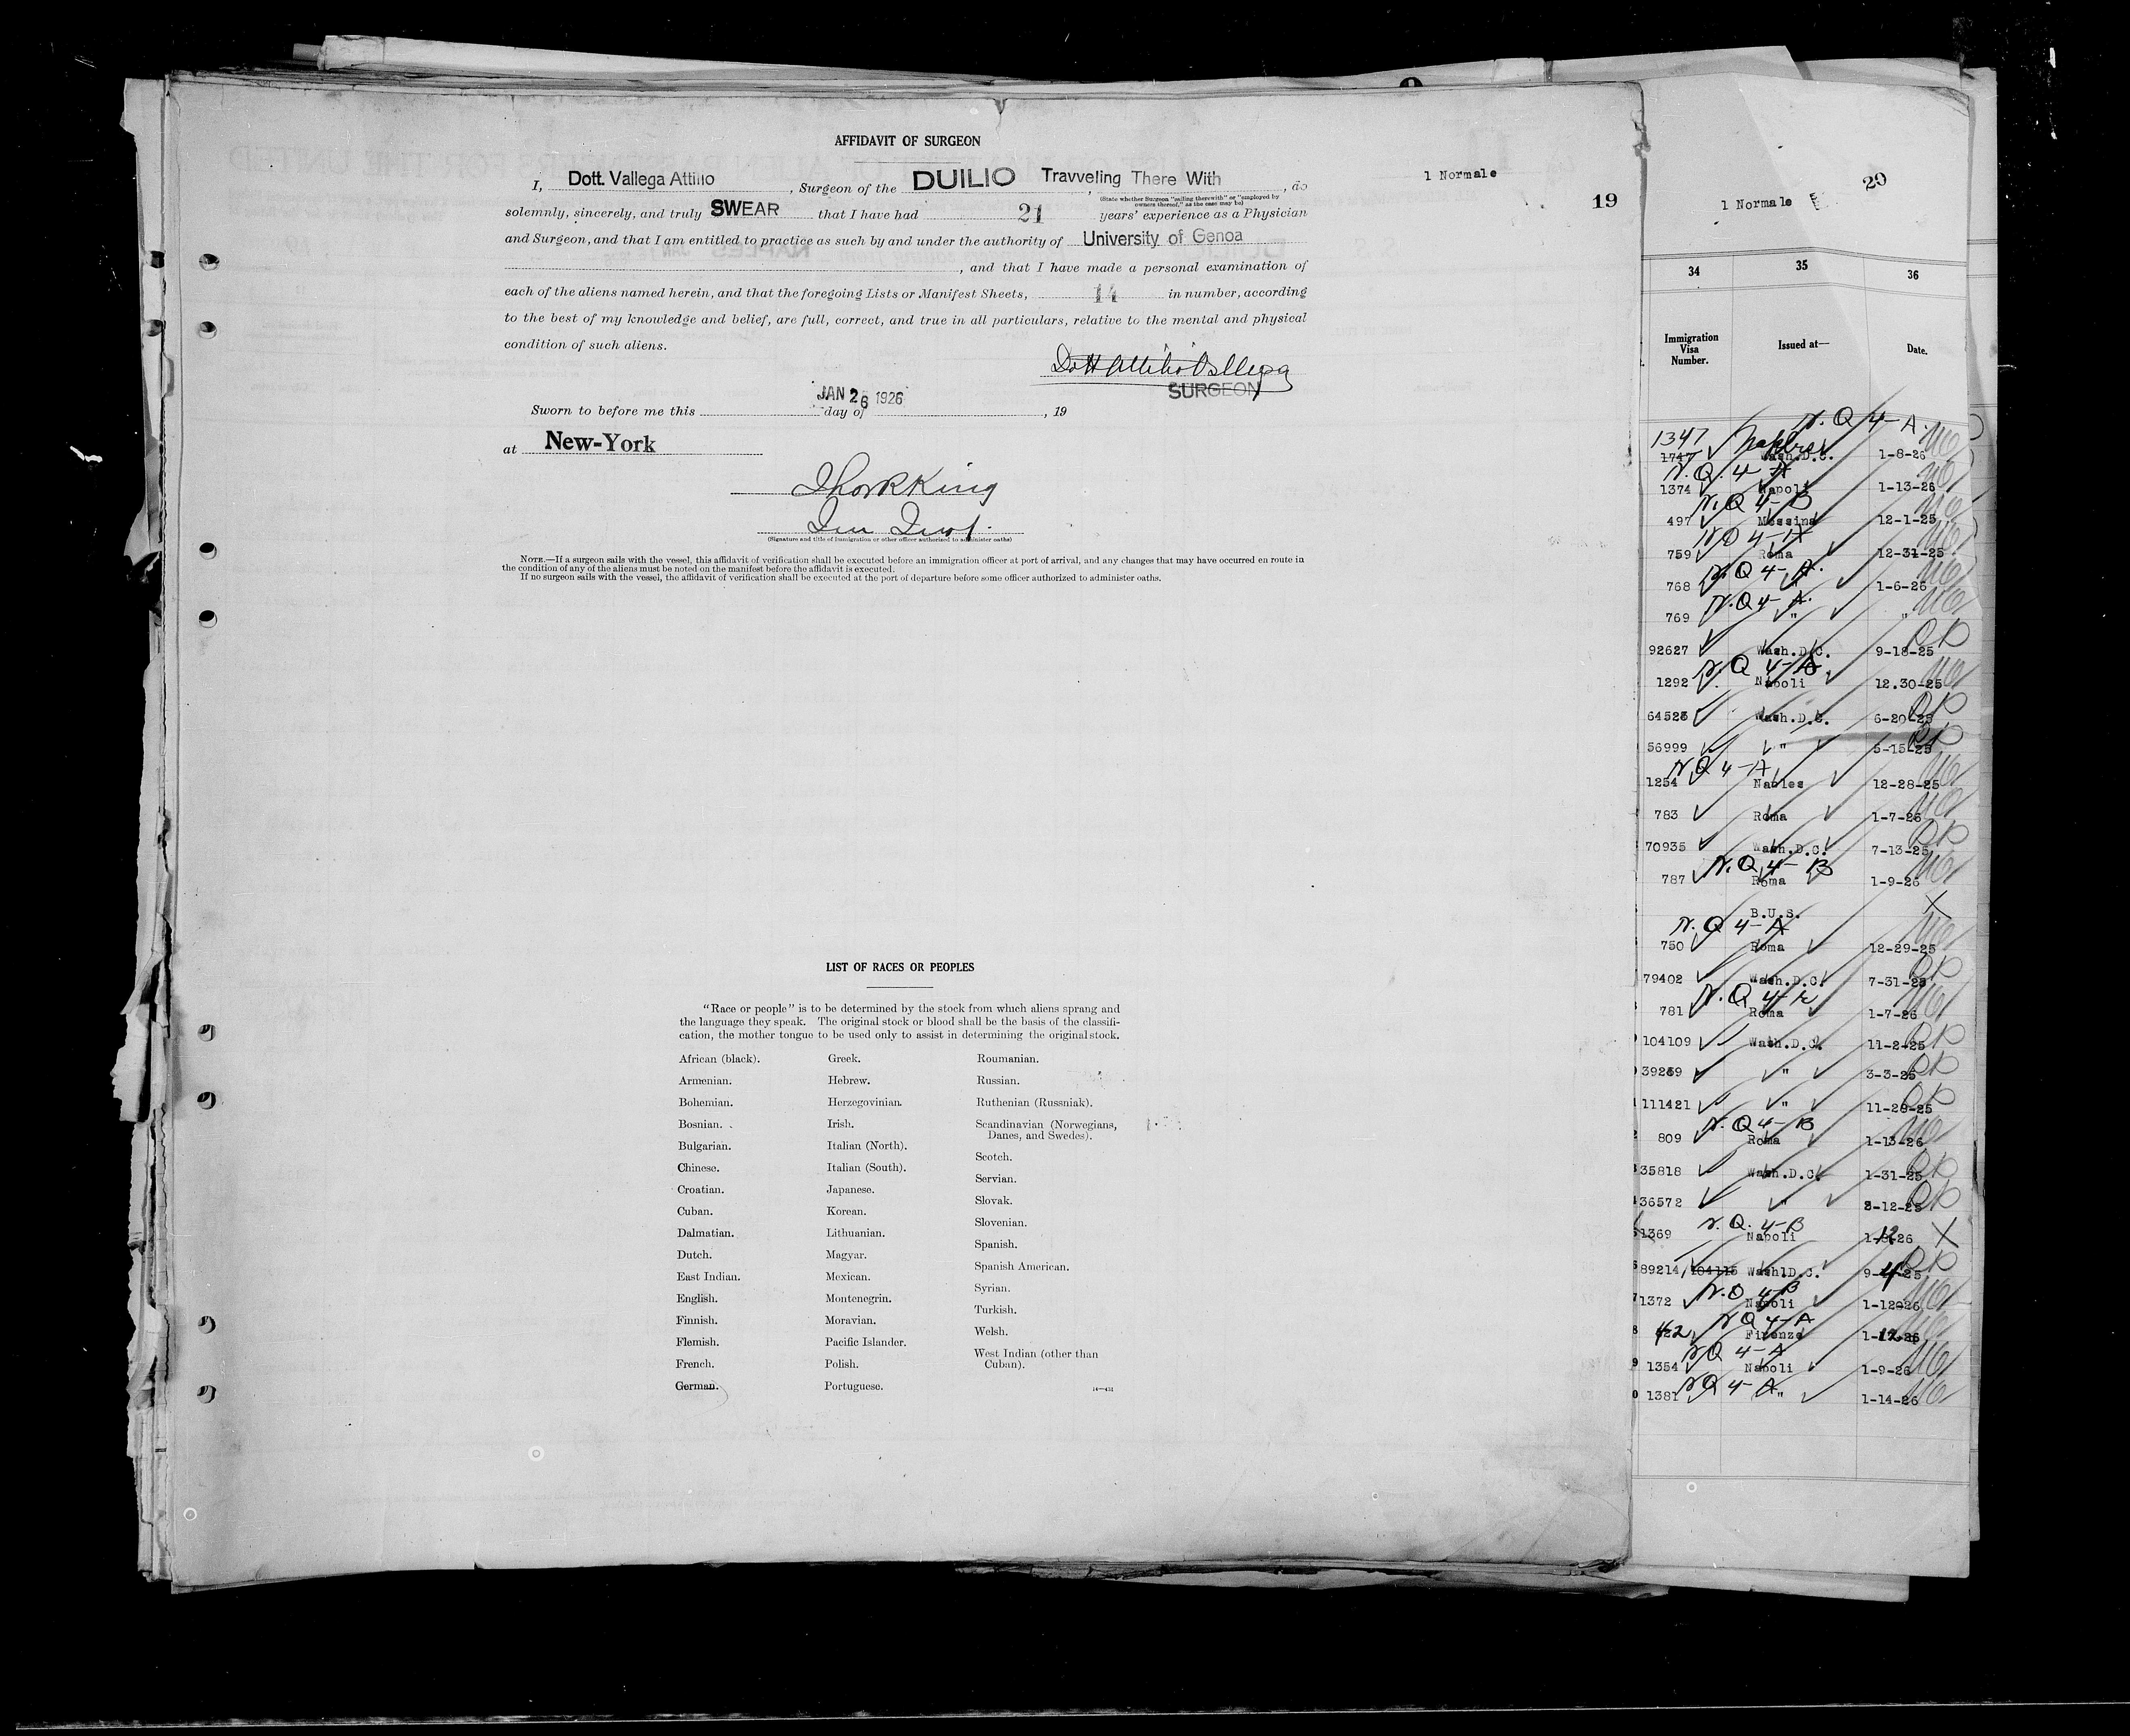 AFFIDAVIT OF SURGEON
I, Dott. Vallega Attilio, Surgeon of the DUILIO Travveling There With, do
(State whether Surgeon "sailing therewith" or "employed by
owners thereof," as the case may be)
solemnly, sincerely, and truly SWEAR that I have had 21 years' experience as a Physician
and Surgeon, and that I am entitled to practice as such by and under the authority of University of Genoa
, and that I have made a personal examination of
each of the aliens named herein, and that the foregoing Lists or Manifest Sheets, 14 in number, according
to the best of my knowledge and belief, are full, correct, and true in all particulars, relative to the mental and physical
condition of such aliens.
SURGEON
JAN 26 1926
Sworn to before me this day of , 19
at New-York
(Signature and title of immigration or other officer authorized to administer oaths)
NOTE.—If a surgeon sails with the vessel, this affidavit of verification shall be executed before an immigration officer at port of arrival, and any changes that may have occurred en route in
the condition of any of the aliens must be noted on the manifest before the affidavit is executed.
If no surgeon sails with the vessel, the affidavit of verification shall be executed at the port of departure before some officer authorized to administer oaths.
LIST OF RACES OR PEOPLES
"Race or people" is to be determined by the stock from which aliens sprang and
the language they speak. The original stock or blood shall be the basis of the classifi-
cation, the mother tongue to be used only to assist in determining the original stock.
African (black).
Armenian.
Bohemian.
Bosnian.
Bulgarian.
Chinese.
Croatian.
Cuban.
Dalmatian.
Dutch.
East Indian.
English.
Finnish.
Flemish.
French.
German.
Greek.
Hebrew.
Herzegovinian.
Irish.
Italian (North).
Italian (South).
Japanese.
Korean.
Lithuanian.
Magyar.
Mexican.
Montenegrin.
Moravian.
Pacific Islander.
Polish.
Portuguese.
Roumanian.
Russian.
Ruthenian (Russniak).
Scandinavian (Norwegians,
Danes, and Swedes).
Scotch.
Servian.
Slovak.
Slovenian.
Spanish.
Spanish American.
Syrian.
Turkish.
Welsh.
West Indian (other than
Cuban).
1 Normale
19
1 Normale
29
34 35 36
Immigration
Visa
Number. Issued at— Date.
N.Q 4-A.
1347 Naples
1747 Wash.D.C. 1-8-26
N.Q. 4-A
1374 Napoli 1-13-26
N.Q 4-B
497 Messina 12-1-25
N Q 4-A
759 Roma 12-31-25
N.Q 4-A.
768 " 1-6-26
N.Q 4-A.
769 " "
92627 Wash.D.C. 9-18-25
N.Q 4-B.
1292 Napoli 12.30-25
64525 Wash.D.C. 6-20-25
56999 " 5-15-25
N Q 4-A
1254 Naples 12-28-25
783 Roma 1-7-26
70935 Wash.D.C. 7-13-25
N.Q 4-B
787 Roma 1-9-26
B.U.S. X
N.Q 4-A
750 Roma 12-29-25
79402 Wash.D.C. 7-31-25
N.Q 4-
781 Roma 1-7-26
104109 Wash.D.C. 11-2-25
39259 " 3-3-25
111421 " 11-28-25
N.Q 4-B
809 Roma 1-13-26
35818 Wash.D.C. 1-31-25
36572 " 2-12-25
N.Q. 4-B
1369 Napoli 1-12-26 X
89214 104115 Wash.D.C. 9-4-25
N.Q 4-B
1372 Napoli 1-12-26
N Q 4-A
42 Firenze 1-12-26
N Q 4-A
1354 Napoli 1-9-26
N Q 4-A
1381 " 1-14-26